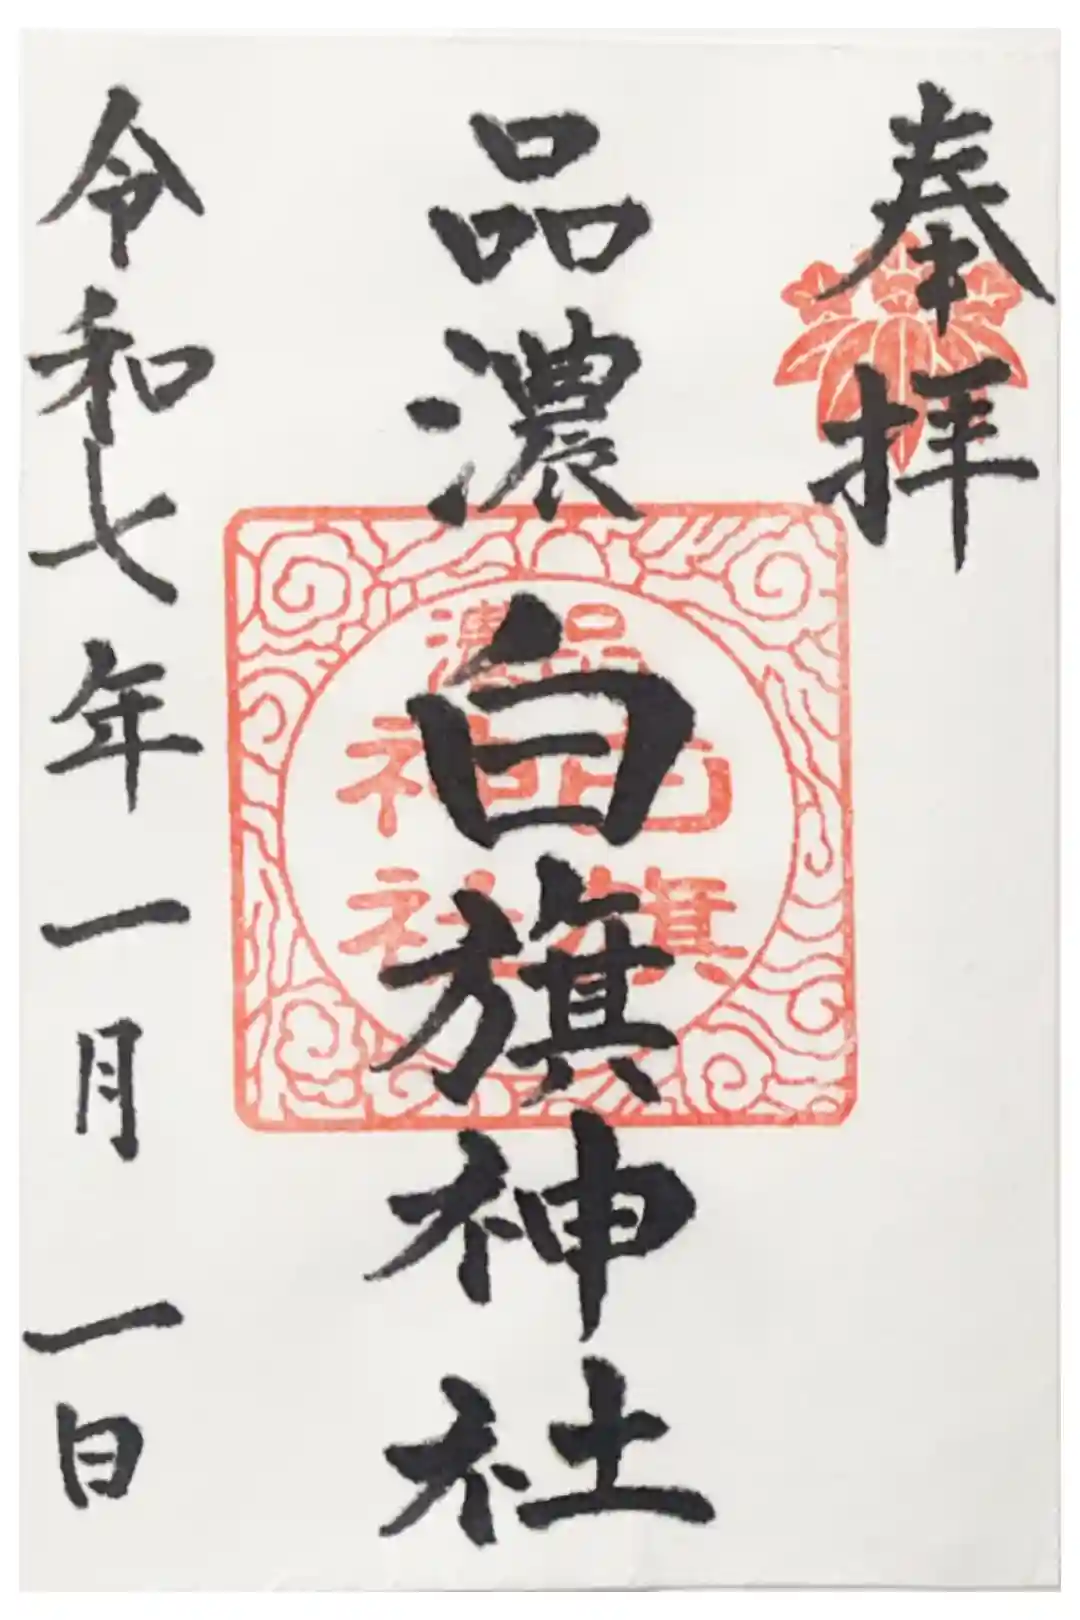 奉拝
品濃白旗神社
品濃
白旗
神社
令和七年一月一日